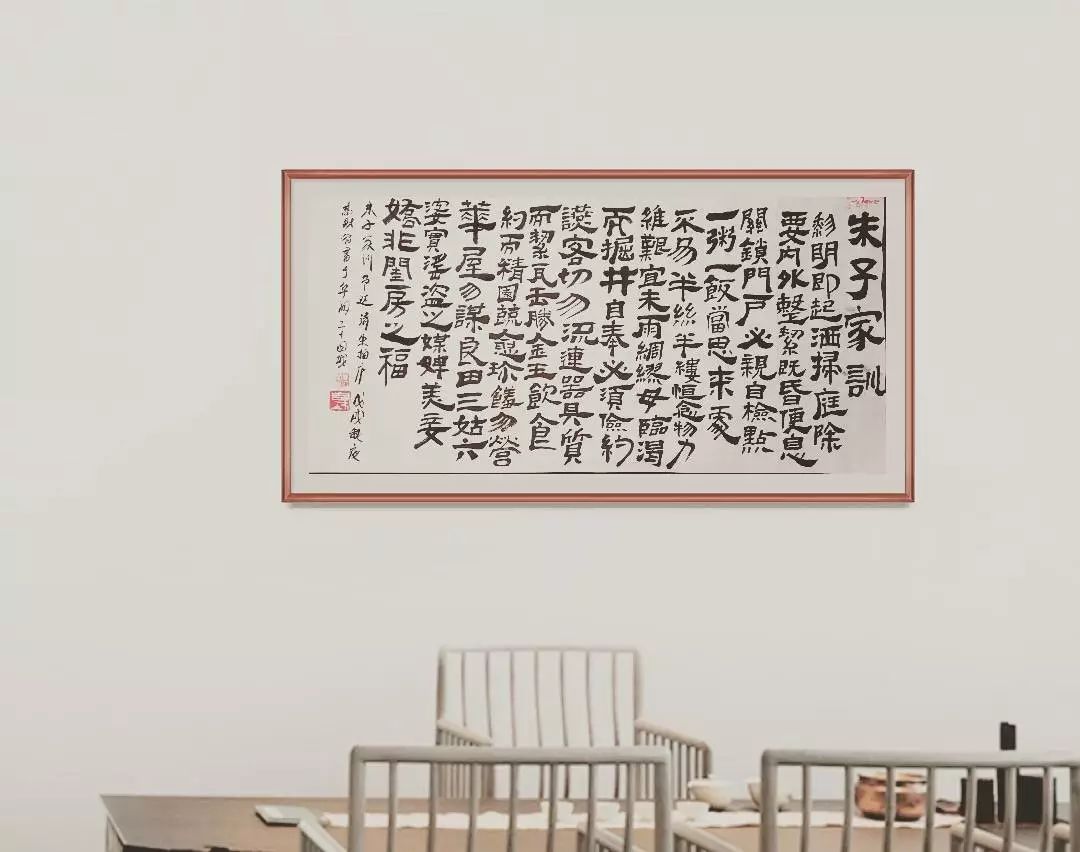 朱子家訓
黎明即起洒掃庭除
要内外整絜既昏便息
關鎖門戶必親自檢點
一粥一飯當思来處
不易半絲半縷恒念物力
維艱宜未雨綢繆毋臨渴
而掘井自奉必須儉約
讌客切勿流連器具質
而絜瓦缶勝金玉飲食
約而精園蔬愈珍饈勿營
華屋勿謀良田三姑六
婆實淫盜之媒婢美妾
嬌非閨房之福
朱子家训乃 清朱柏 戊戌
書于